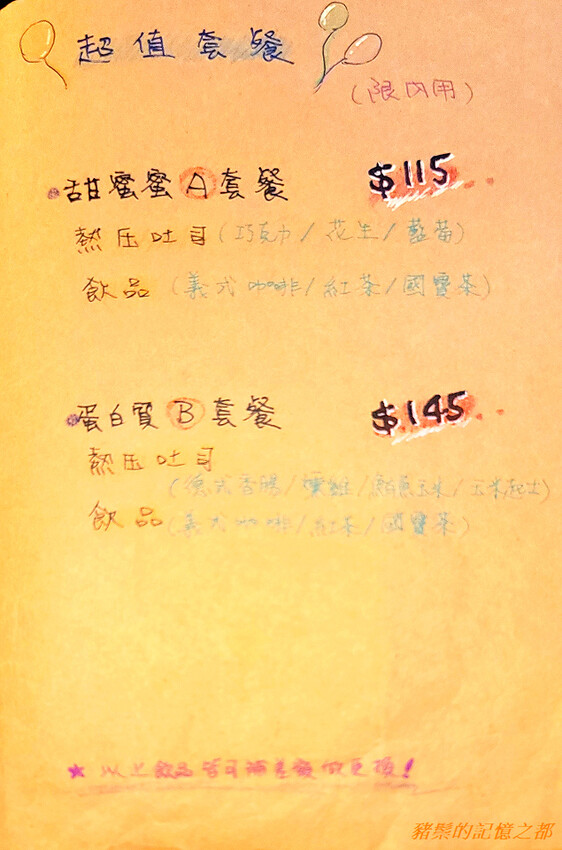 超值套餐
(限內用)
甜蜜蜜A套餐 $115
熱压吐司(巧克力/花生/藍莓)
飲品(義式咖啡/紅茶/國寶茶)
蛋白質B套餐 $145
熱压吐司
(德式香腸/燻雞/鮪魚玉米/玉米起士)
飲品(義式咖啡/紅茶/國寶茶)
★以上飲品皆可補差額做更換!
豬鬃的記憶之都